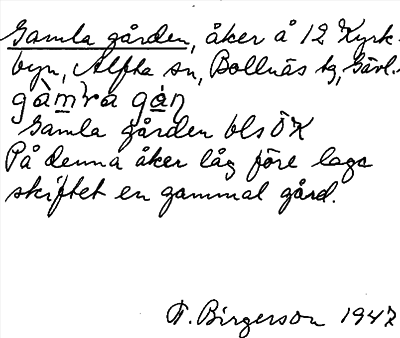 Gamla gården, åker å 12 Kyrk-
byn, Alfta sn, Bollnäs tg, Gävl.
Gamla gården bls ÖK
På denna åker låg före laga
skiftet en gammal gård.
F. Birgerson 1947